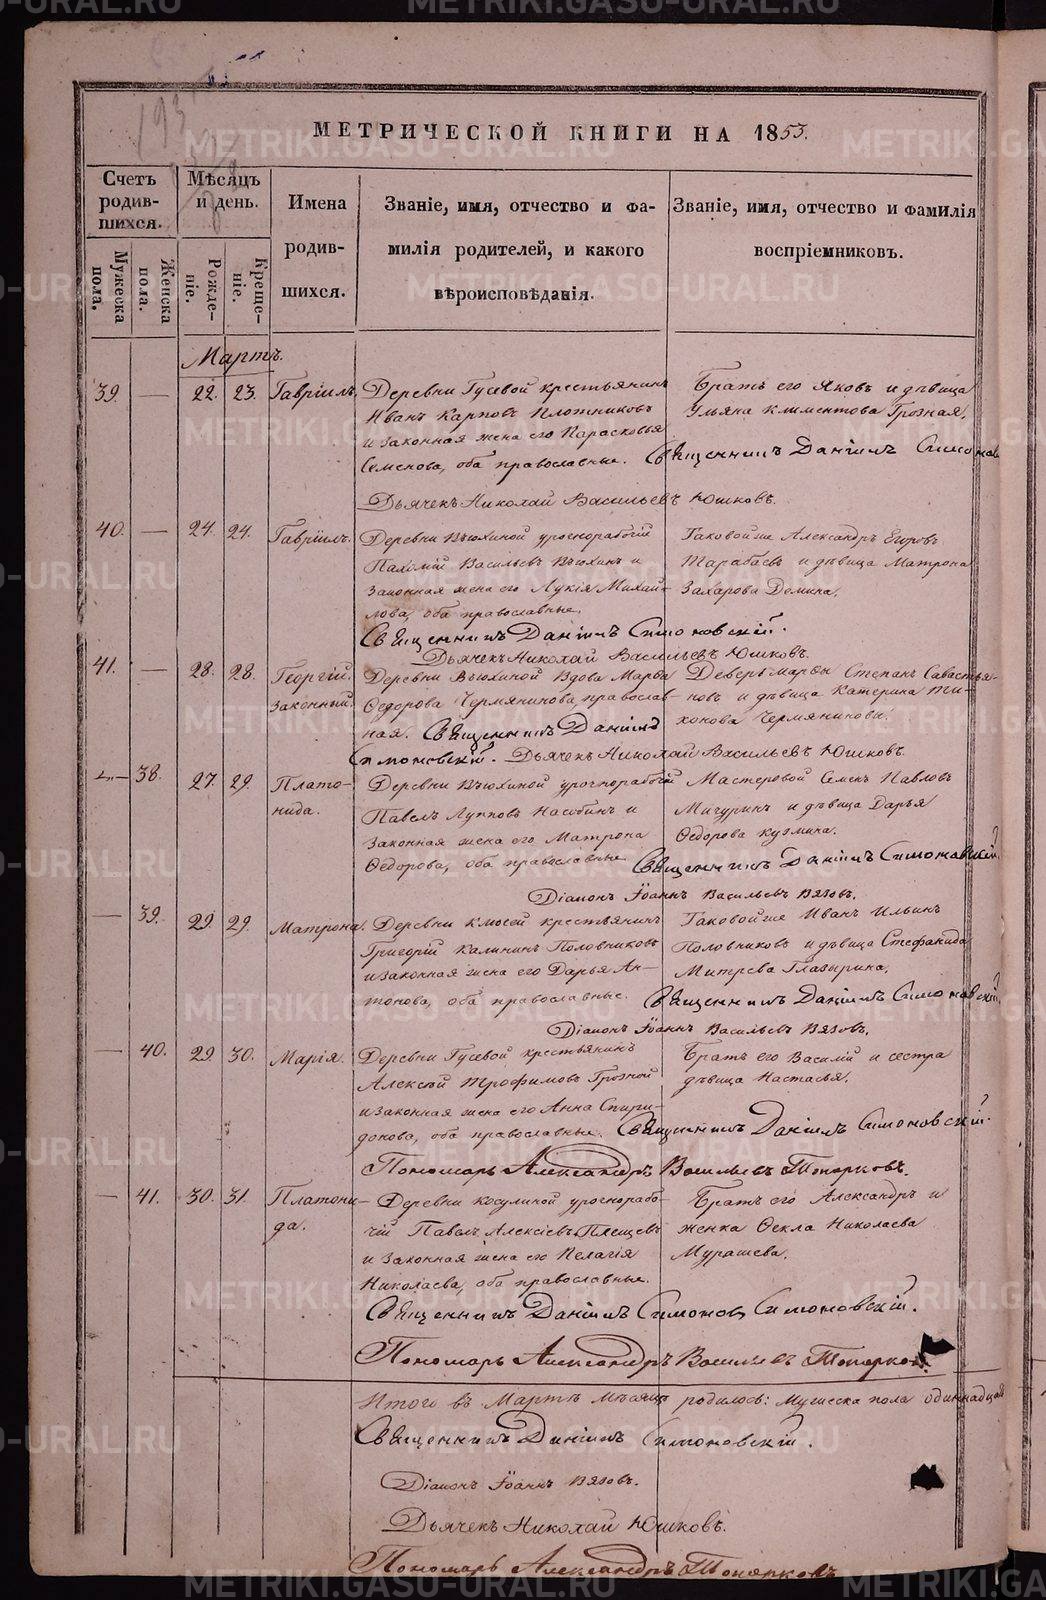 МЕТРИЧЕСКОЙ КНИГИ НА 1853.
Счетъ родившихся.
Мужеска пола.
Женска пола.
Мѣсяцъ и день.
Рожденіе.
Крещеніе.
Имена родившихся.
Званіе, имя, отчество и фамилія родителей, и какого вѣроисповѣданія.
Званіе, имя, отчество и фамилія воспріемниковъ.
Мартъ.
39. — 22. 23. Гавріилъ. Деревни Гусевой крестьянинъ
Иванъ Карповъ Плотниковъ
и законная жена его Парасковья
Семенова, оба православные.
Братъ его Яковъ и дѣвица
Ульяна Климентова Грозная.
Священникъ Даніилъ
Дьячекъ Николай Васильевъ Юшковъ.
40. — 24. 24. Гавріилъ. Деревни Вьюхиной урочнорабочій
Пахомій Васильевъ Вьюхинъ и
законная жена его Лукія Михай-
лова, оба православные.
Таковой же Александръ Егоровъ
Тарабаевъ и дѣвица Матрона
Захарова Демина.
Священникъ Даніилъ Симоновскій.
Дьячекъ Николай Васильевъ Юшковъ.
41. — 28. 28. Георгій. Законный. Деревни Вьюхиной вдова Марѳа
Ѳедорова Чермянинова, православ-
ная.
Деверь Марѳы Степанъ Савастья-
новъ и дѣвица Катерина Ти-
хонова Чермянинова.
Священникъ Даніилъ
Симоновскій. Дьячекъ Николай Васильевъ Юшковъ.
— 38. 27. 29. Платонида. Деревни Вьюхиной урочнорабочій
Павелъ Лупповъ и
законная жена его Матрона
Ѳедорова, оба православные.
Мастеровой Семенъ Павловъ
Мичуринъ и дѣвица Дарья
Ѳедорова Кузмина.
Священникъ Даніилъ Симоновскій.
Діаконъ Іоаннъ Васильевъ Вязовъ.
— 39. 29. 29. Матрона. Деревни крестьянинъ
Григорій Калининъ Половниковъ
и законная жена его Дарья Ан-
тонова, оба православные.
Таковой же Иванъ Ильинъ
Половниковъ и дѣвица Стефанида
Митрева Глазырина.
Священникъ Даніилъ Симоновскій.
Діаконъ Іоаннъ Васильевъ Вязовъ.
— 40. 29 30. Марія. Деревни Гусевой крестьянинъ
Алексѣй Трофимовъ Грозной
и законная жена его Анна Спири-
донова, оба православные.
Братъ его Василій и сестра
дѣвица Настасья.
Священникъ Даніилъ Симоновскій.
Пономарь Александръ Васильевъ Топорковъ.
— 41. 30. 31. Платонида. Деревни Косулиной урочнорабо-
чій Павелъ Алексіевъ Плещевъ
и законная жена его Пелагія
Николаева, оба православные.
Братъ его Александръ и
женка Ѳекла Николаева
Мурашева.
Священникъ Даніилъ Симонов Симоновскій.
Пономарь Александръ Васильевъ Топорков
Итого въ Мартѣ мѣсяцѣ родилось: Мужеска пола одиннадцать
Священникъ Даніилъ Симоновскій.
Діаконъ Іоаннъ Вязовъ.
Дьячекъ Николай Юшковъ.
Пономарь Александръ Топорковъ
METRIKI.GASO-URAL.RU